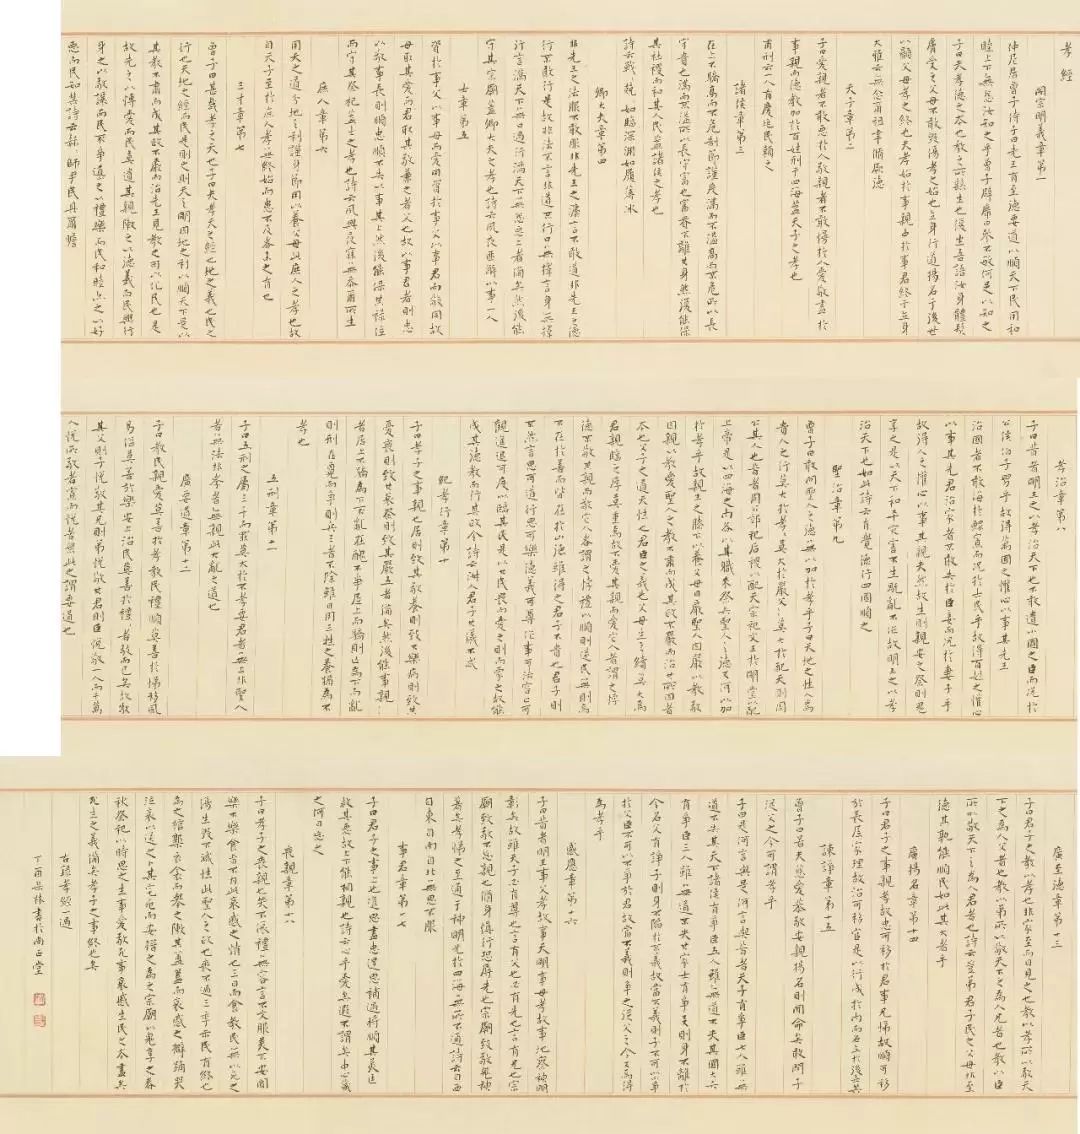 孝經
開宗明義章第一
仲尼居曾子侍子曰先王有至德要道以順天下民用和
睦上下無怨汝知之乎曾子辟席曰參不敏何足以知之
子曰夫孝德之本也教之所繇生也復坐吾語汝身體髮
膚受之父母不敢毀傷孝之始也立身行道揚名于後世
以顯父母孝之終也夫孝始於事親中於事君終于立身
大雅云無念爾祖聿修厥德
天子章第二
子曰愛親者不敢惡於人敬親者不敢慢於人愛敬盡於
事親而德教加於百姓刑于四海蓋天子之孝也
甫刑云一人有慶兆民賴之
諸侯章第三
在上不驕高而不危制節謹度滿而不溢高而不危所以長
守貴也滿而不溢所以長守富也富貴不離其身然後能保
其社稷而和其人民蓋諸侯之孝也
詩云戰戰兢兢如臨深淵如履薄冰
卿大夫章第四
非先王之法服不敢服非先王之法言不敢道非先王之德
行不敢行是故非法不言非道不行口無擇言身無擇
行言滿天下無口過行滿天下無怨惡三者備矣然後能
守其宗廟蓋卿大夫之孝也詩云夙夜匪懈以事一人
士章第五
資於事父以事母而愛同資於事父以事君而敬同故
母取其愛而君取其敬兼之者父也故以事君者則忠
以敬事長則順忠順不失以事其上然後能保其祿位
而守其祭祀蓋士之孝也詩云夙興夜寐無忝爾所生
庶人章第六
用天之道分地之利謹身節用以養父母此庶人之孝也故
自天子至於庶人孝無終始而患不及者未之有也
三才章第七
曾子曰甚哉孝之大也子曰夫孝天之經也地之義也民之
行也天地之經而民是則之則天之明因地之利以順天下是以
其教不肅而成其政不嚴而治先王見教之可以化民也是
故先之以博愛而民莫遺其親陳之以德義而民興行
身之以敬讓而民不爭道之以禮樂而民和睦示之以好
惡而民知禁詩云赫赫師尹民具爾瞻
孝治章第八
子曰昔者明王之以孝治天下也不敢遺小國之臣而況於
公侯伯子男乎故得萬國之懽心以事其先王
治國者不敢侮於鰥寡而況於士民乎故得百姓之懽心
以事其先君治家者不敢失於臣妾而況於妻子乎
故得人之懽心以事其親夫然故生則親安之祭則鬼
享之是以天下和平災害不生禍亂不作故明王之以孝
治天下也如此詩云有覺德行四國順之
聖治章第九
曾子曰敢問聖人之德無以加於孝乎子曰天地之性人為
貴人之行莫大於孝孝莫大於嚴父嚴父莫大於配天則周
公其人也昔者周公郊祀后稷以配天宗祀文王於明堂以配
上帝是以四海之內各以其職來祭夫聖人之德又何以加
於孝乎故親生之膝下以養父母日嚴聖人因嚴以教敬
因親以教愛聖人之教不肅而成其政不嚴而治其所因者
本也父子之道天性也君臣之義也父母生之續莫大焉
君親臨之厚莫重焉故不愛其親而愛它人者謂之悖
德不敬其親而敬它人者謂之悖禮以順則逆民無則焉
不在於善而皆在於凶德雖得之君子不貴也君子則
不然言思可道行思可樂德義可尊作事可法容止可
觀進退可度以臨其民是以其民畏而愛之則而象之故能
成其德教而行其政令詩云淑人君子其儀不忒
紀孝行章第十
子曰孝子之事親也居則致其敬養則致其樂病則致其
憂喪則致其哀祭則致其嚴五者備矣然後能事親事親
者居上不驕為下不亂在醜不爭居上而驕則亡為下而亂
則刑在醜而爭則兵三者不除雖日用三牲之養猶為不
孝也
五刑章第十一
子曰五刑之屬三千而罪莫大於不孝要君者無上非聖人
者無法非孝者無親此大亂之道也
廣要道章第十二
子曰教民親愛莫善於孝教民禮順莫善於悌移風
易俗莫善於樂安上治民莫善於禮禮者敬而已矣故敬
其父則子悅敬其兄則弟悅敬其君則臣悅敬一人而千萬
人悅所敬者寡而悅者眾此之謂要道也
廣至德章第十三
子曰君子之教以孝也非家至而日見之也教以孝所以敬天
下之為人父者也教以弟所以敬天下之為人兄者也教以臣
所以敬天下之為人君者也詩云豈弟君子民之父母非至
德其孰能順民如此其大者乎
廣揚名章第十四
子曰君子之事親孝故忠可移於君事兄悌故順可移
於長居家理故治可移官是以行成於內而名立於後世矣
諫諍章第十五
曾子曰若夫慈愛恭敬安親揚名則聞命矣敢問子
從父之令可謂孝乎
子曰是何言與是何言與昔者天子有爭臣七人雖無
道不失其天下諸侯有爭臣五人雖無道不失其國大夫
有爭臣三人雖無道不失其家士有爭友則身不離於
令名父有諍子則身不陷於不義故當不義則子不可以不爭
於父臣不可以不爭於君故當不義則爭之從父之令又焉得
為孝乎
感應章第十六
子曰昔者明王事父孝故事天明事母孝故事地察神明
彰矣故雖天子必有尊也言有父也必有先也言有兄也宗
廟致敬不忘親也脩身慎行恐辱先也宗廟致敬鬼神
著矣孝悌之至通于神明光於四海無所不通詩云自西
自東自南自北無思不服
事君章第十七
子曰君子之事上也進思盡忠退思補過將順其美匡
救其惡故上下能相親也詩云心乎愛矣遐不謂矣中心藏
之何日忘之
喪親章第十八
子曰孝子之喪親也哭不依禮無容言不文服美不安聞
樂不樂食旨不甘此哀慼之情也三日而食教民無以死
傷生毀不滅性此聖人之政也喪不過三年示民有終也
為之棺槨衣衾而舉之陳其簠簋而哀慼之擗踊哭
泣哀以送之卜其宅兆而安措之為之宗廟以鬼享之春
秋祭祀以時思之生事愛敬死事哀慼生民之本盡矣
死生之義備矣孝子之事終也矣
古錄孝經一過
丁酉